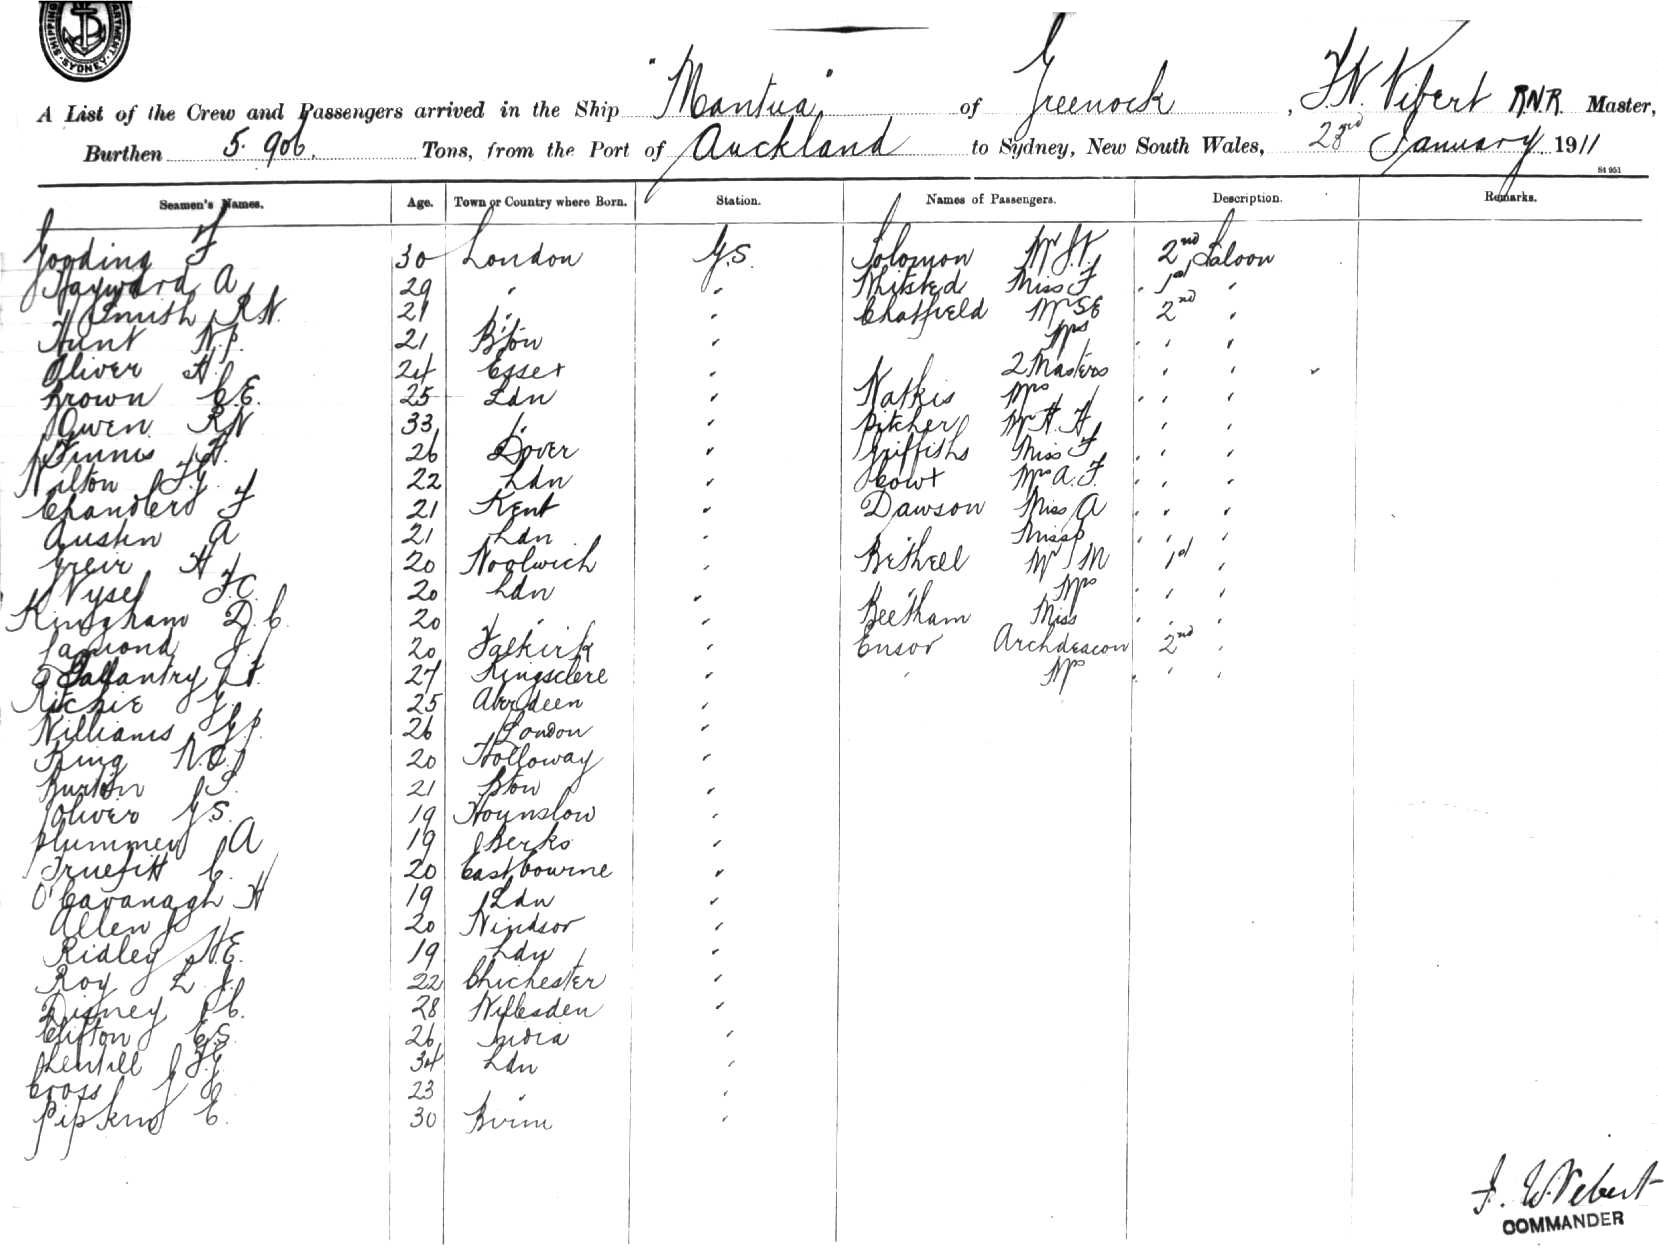 SHIPPING DEPARTMENT. SYDNEY.
A List of the Crew and Passengers arrived in the Ship "Mantua" of Greenock, F.W. Vibert R.N.R. Master,
Burthen 5.906. Tons, from the Port of Auckland to Sydney, New South Wales, 23rd January 1911
S4 951
Seamen's Names. Age. Town or Country where Born. Station. Names of Passengers. Description. Remarks.
Gooding F 30 London G.S. Solomon Mr 2nd Saloon
Hayward A 29 " " Miss F " 1st "
Smith R.W. 21 " " Chatfield Mr S E 2nd "
Hunt W.P. 21 B'ton " Mrs " " "
Oliver H 24 Essex " 2 Masters " " "
Brown C.E. 25 Ldn " Watkis Mrs " " "
Owen RW 33 " " Pitcher Mr H.H. " " "
Finnis H. 26 Dover " Griffiths Miss F " " "
Walton F.G. 22 Ldn " Mrs A.F. " " "
Chandler F 21 Kent " Dawson Miss A " " "
Austin A 21 Ldn " " Miss " " "
Greir H 20 Woolwich " Bethell Mr M " 1st "
F.C. 20 Ldn " " Mrs " " "
Kingham D.C. 20 " " Beetham Miss " " "
Lamond J. 20 Falkirk " Ensor Archdeacon 2nd "
Gallantry F. 27 Kingsclere " " Mrs " " "
Ritchie G. 25 Aberdeen "
Williams G.P. 26 London "
King 20 Holloway "
Burton S. 21 B'ton "
Oliver G.S. 19 Hounslow "
Plummer A 19 Berks "
Truefitt C. 20 Eastbourne "
O'Cavanagh H 19 Ldn "
Allen J 20 Windsor "
Ridley H.E. 19 Ldn "
Roy L J. 22 Chichester "
Disney P.C. 28 Willesden "
Clifton E.S. 26 India "
34 Ldn "
Cross J E 23 " "
Pipkins E. 30 Birm "
F. W. Vibert
COMMANDER